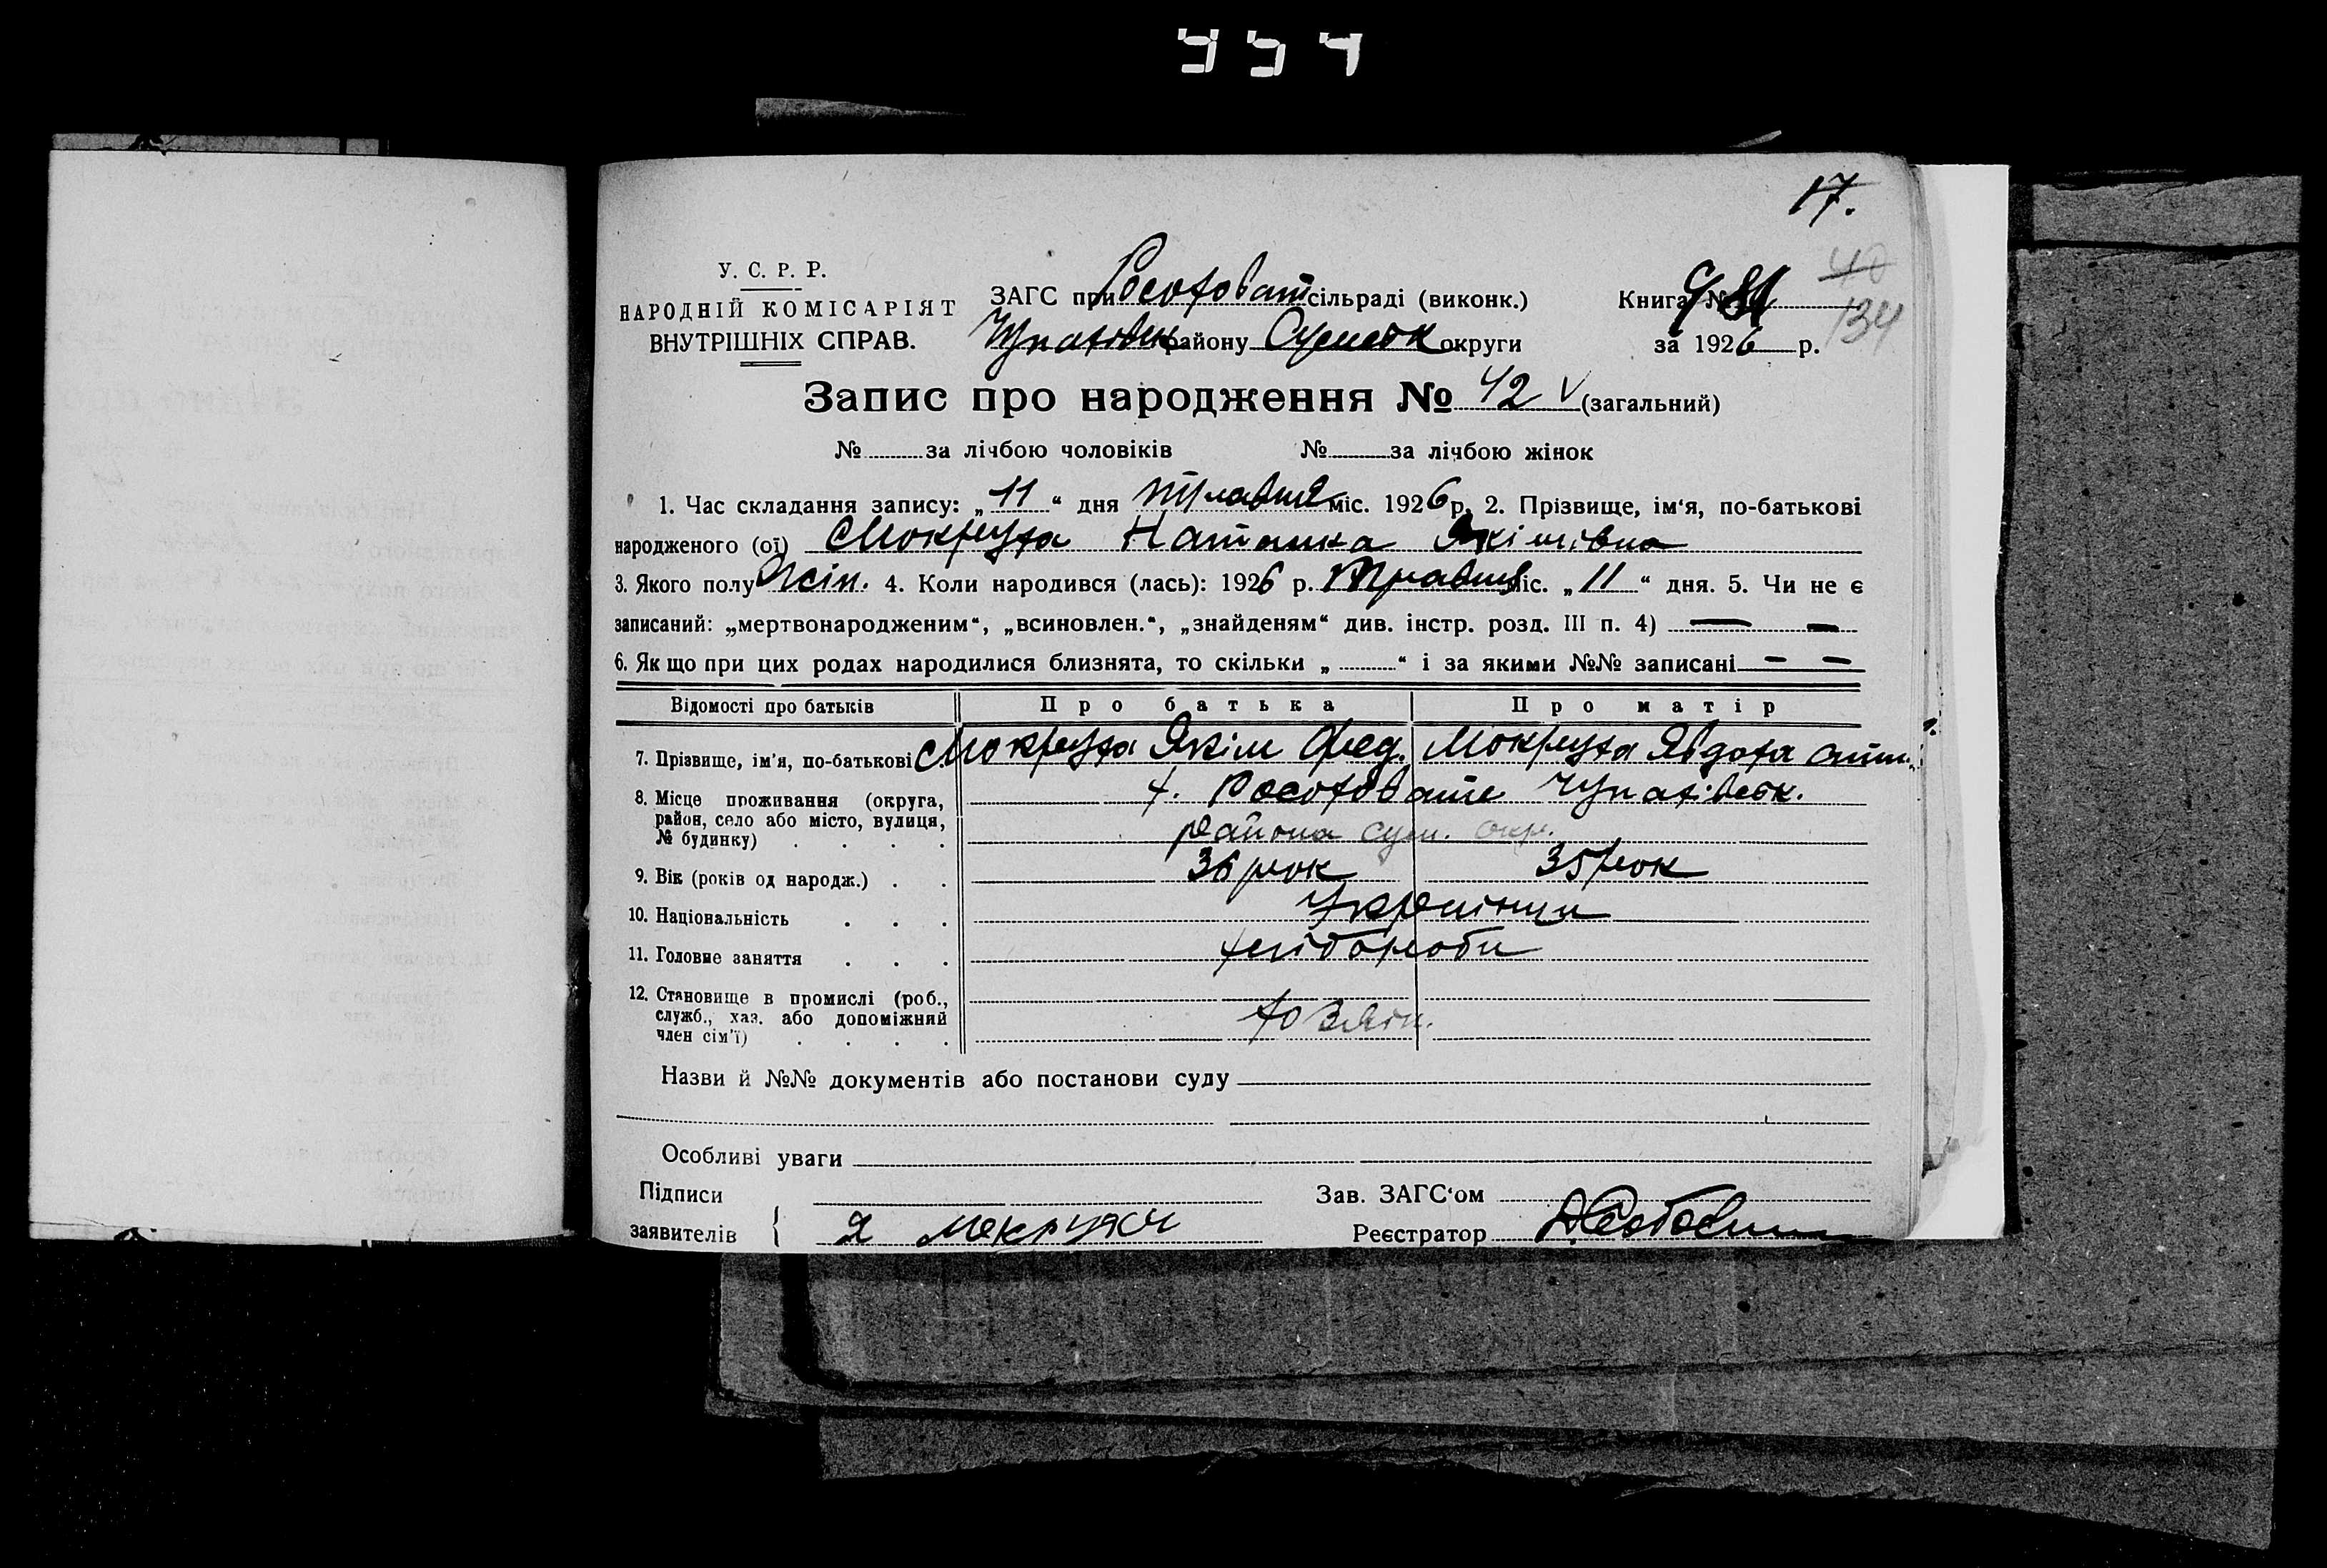 17.
У. С. Р. Р.
НАРОДНІЙ КОМІСАРІЯТ
ВНУТРІШНІХ СПРАВ.
ЗАГС при Росоховат сільраді (виконк.)
району Сумськ округи
Книга №
за 1926 р.
40
134
Запис про народження № 42 V (загальний)
№ за лічбою чоловіків № за лічбою жінок
1. Час складання запису: „11“ дня Травня міс. 1926 р. 2. Прізвище, ім‘я, по-батькові
народженого (ої) Мокруха Наталка Якімівна
3. Якого полу Жін. 4. Коли народився (лась): 1926 р. Травня міс. „11“ дня. 5. Чи не є
записаний: „мертвонародженим“, „всиновлен.“, „знайденям“ див. інстр. розд. III п. 4) — —
6. Якщо при цих родах народилися близнята, то скільки „ “ і за якими №№ записані — —
Відомості про батьків Про батька Про матір
7. Прізвище, ім‘я, по-батькові Мокруха Якім Фед. Мокруха Явдоха
8. Місце проживання (округа, район, село або місто, вулиця, № будинку) х. Росоховате
района Сум. окр.
9. Вік (років од народж.) 36 рок 35 рок
10. Національність Українци
11. Головне заняття хліборобы
12. Становище в промислі (роб., служб., хаз. або допоміжний член сім‘ї) хозяін.
Назви й №№ документів або постанови суду
Особливі уваги
Підписи
заявителів { Я
Зав. ЗАГС‘ом
Реєстратор